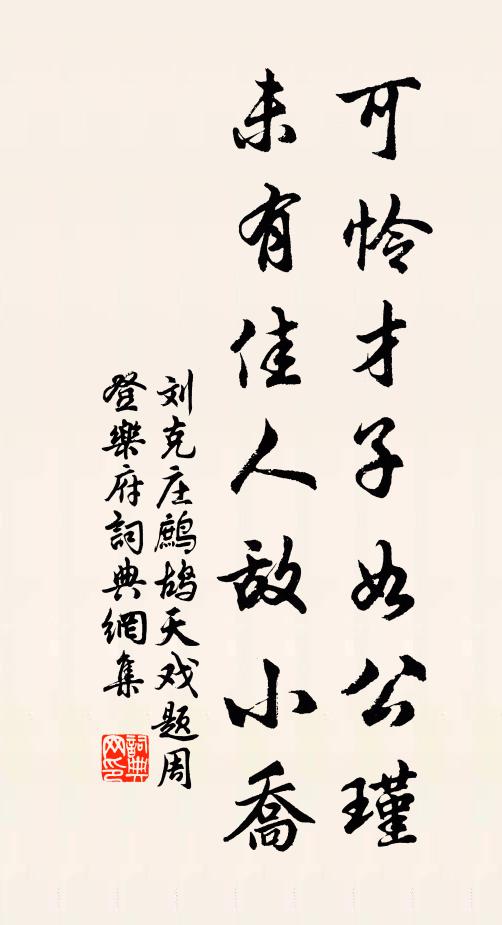 可怜才子如公瑾
未有佳人敌小喬
刘克庄鹧鸪天戏题周
登樂府詞典網集
詞典网印